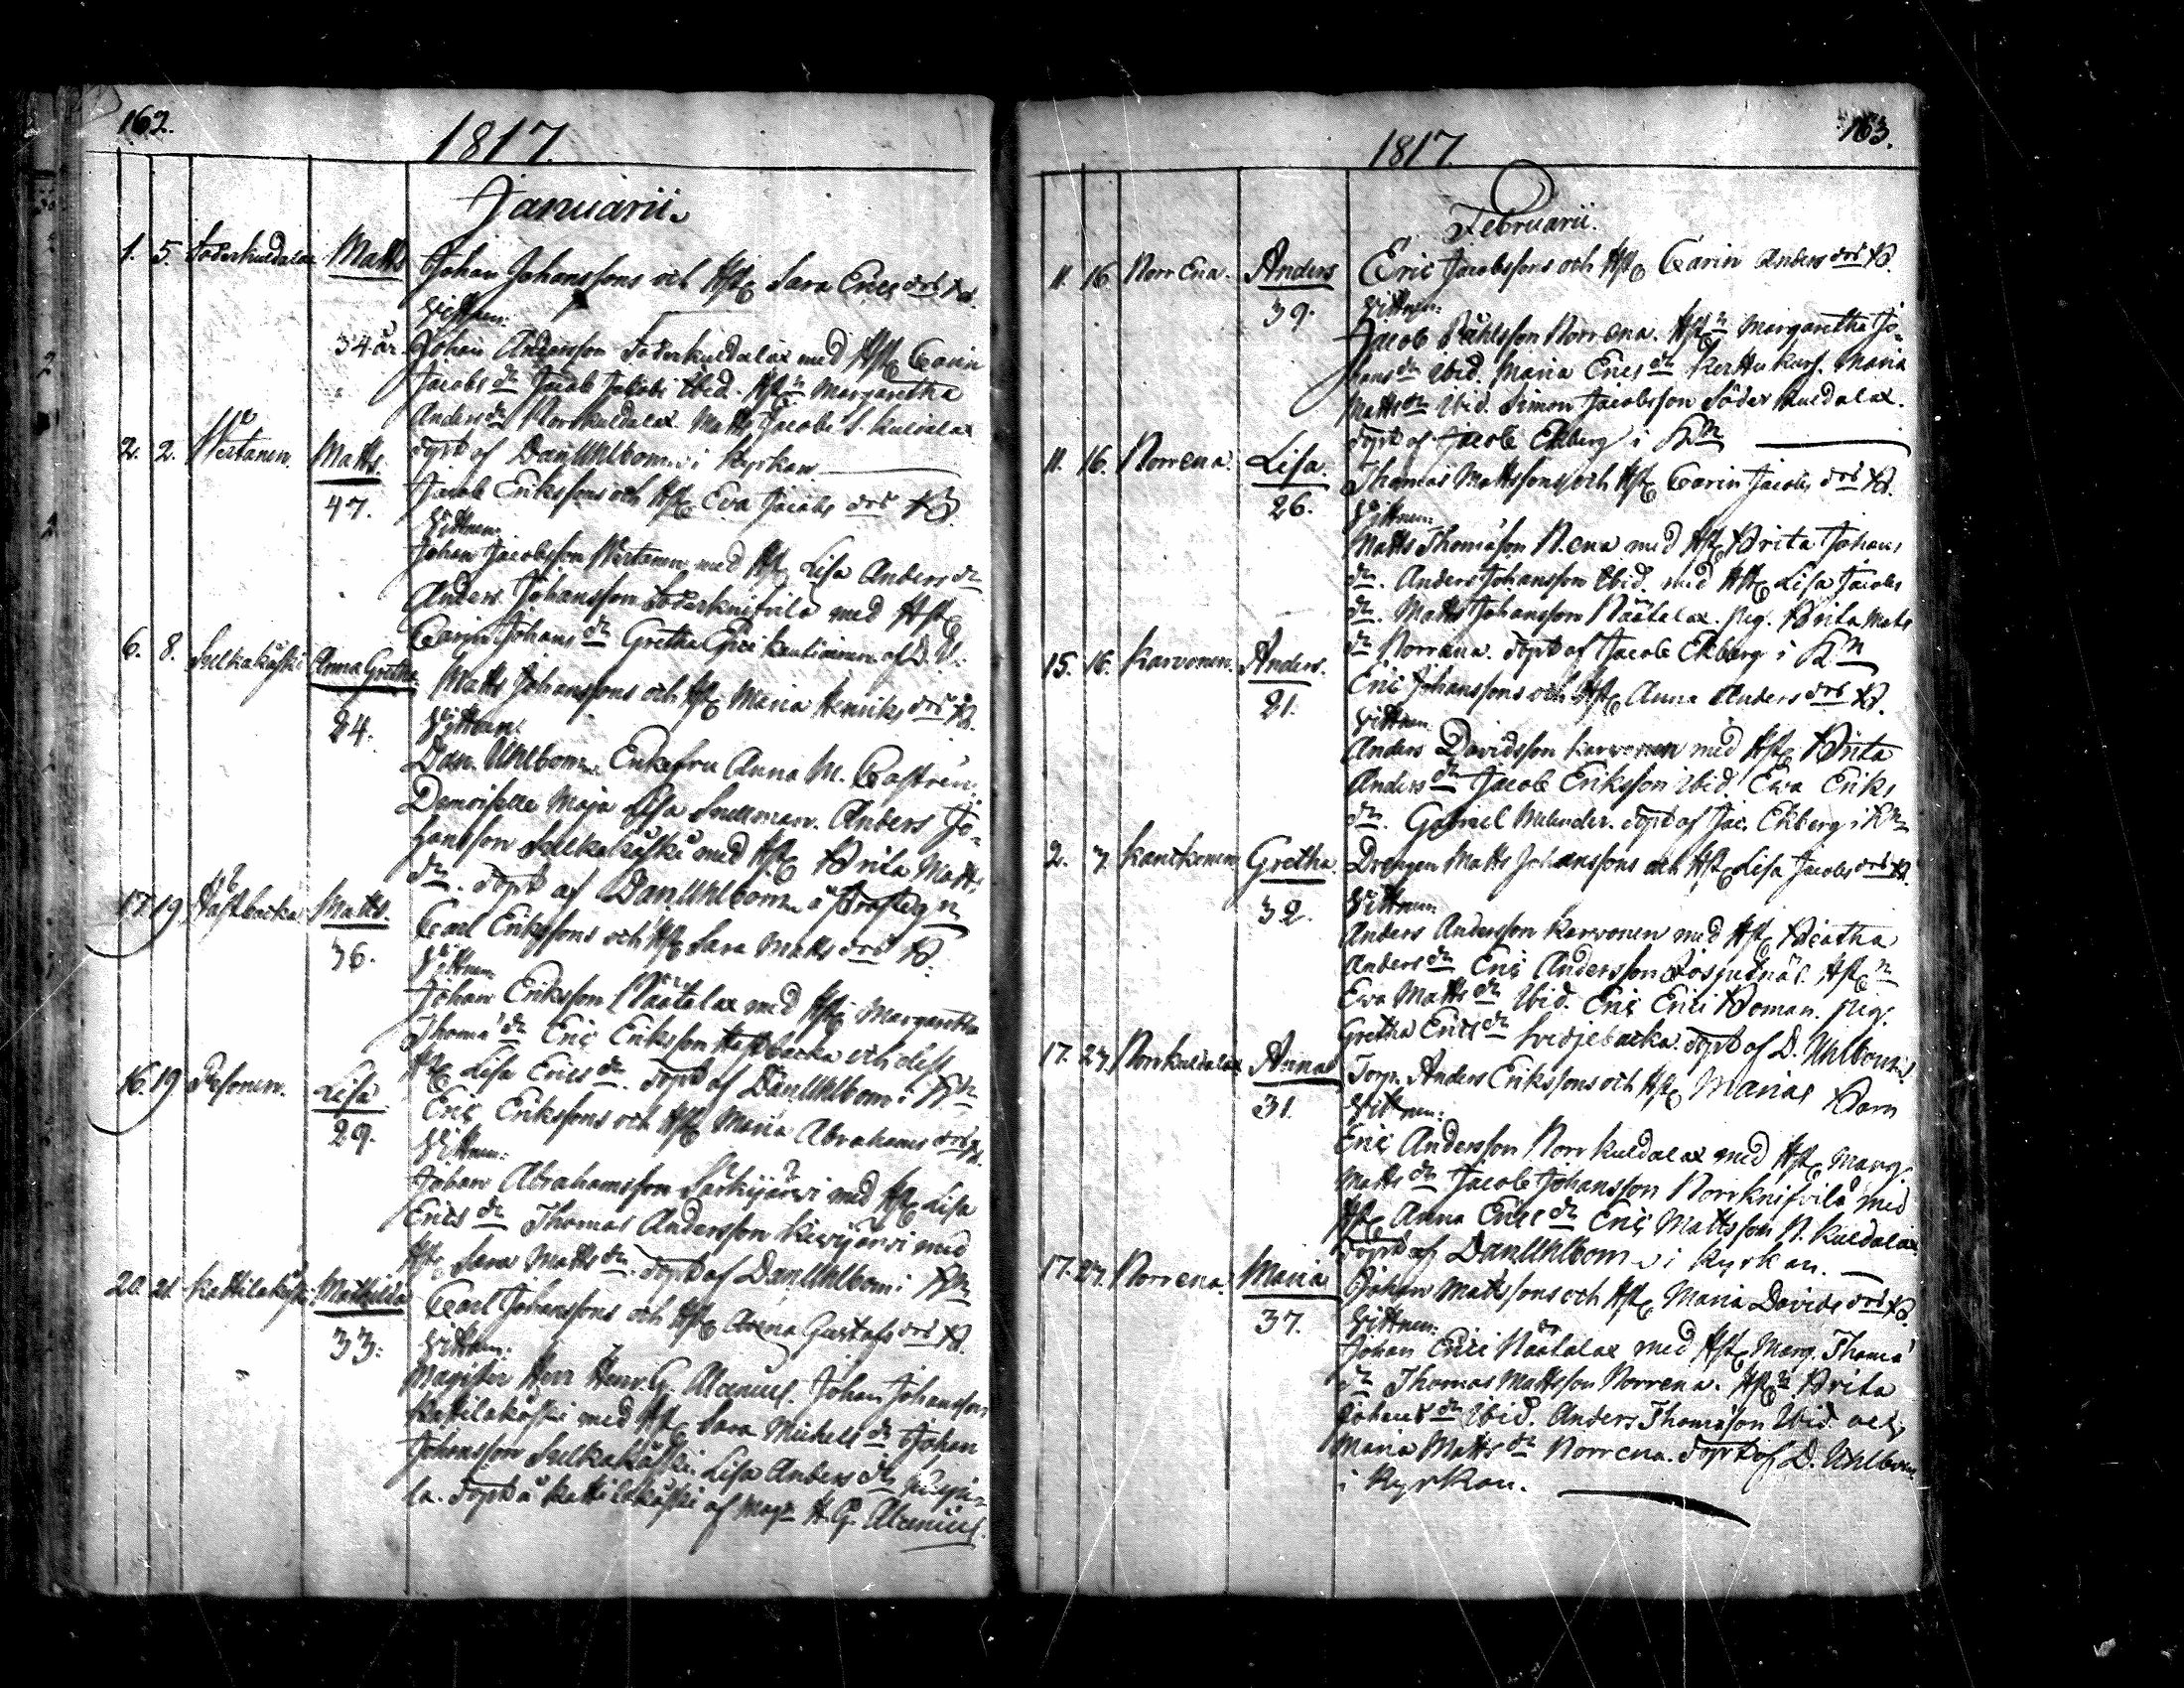 162.
1817.
Januarii.
1. 5. Söderkuldalax Matts Johan Johanssons och Hst. Sara Erics drs B.
Vittnen:
34 år. Johan Andersson Söderkuldalax med Hst. Carin
Jacobs dr Jacob Jakobs Ibid. Hstn Margaretha
Anders dr Norrkuldalax. Matts Jacobs S. kuldalax
döpt af Dan. Uhlbom i Kyrkan
2. 2. Wirtanen. Matts. Jacob Erikssons och Hst. Eva Jacobs drs B.
47. Vittnen:
Johan Jacobsson Wirtanen med Hst. Lisa Anders dr
Anders Johansson Söderknifvilä med Hst.
Carin Johans dr Gretha Erici af D. U.
6. 8. Sulkakoski Anna Gretha. Matts Johanssons och Hst. Maria Henriks drs B.
24. Vittnen:
Dan. Uhlbom. Enkefru Anna M. Castrén.
Demoiselle Maja Lisa Snellman. Anders Jo-
hansson Sulkakoski med Hst. Brita Matts
dr. döpt af Dan. Uhlbom i
17. 19. Hästbacka Matts. Carl Erikssons och Hst. Sara Matts drs B.
36. Vittnen
Johan Eriksson Näätalax med Hst. Margaretha
Thomæ dr Eric Eriksson Hästbacka och dess
Hst. Lisa Erics dr. döpt af Dan. Uhlbom i Kn
16. 19. Pesonen. Lisa Eric Erikssons och Hst. Maria Abrahams drs B.
29. Vittnen:
Johan Abrahamsson Särkijärvi med Hst. Lisa
Erics dr Thomas Andersson Kivijärvi med
Hst. Sara Matts dr. döpt af Dan. Uhlbom i Kn
20. 21. Kattilakoski. Mathilda Carl Johanssons och Hst. Greta Gustafs drs B.
33. Vittnen:
Magister Herr Henr. G. Alcenius. Johan Johansson
Kattilakoski med Hst. Sara Michels dr Johan
Johansson Sulkakoski. Lisa Anders dr
la. döpt å Kattilakoski af Mag. H. G. Alcenius.
163.
1817
Februarii.
11. 16. Norr Ena. Anders Eric Jacobssons och Hst. Carin Anders drs B.
39. Vittnen:
Jacob Påhlsson Norrena. Hstn Margaretha Jo-
hans dr Ibid. Maria Erics dr Maria
Matts dr Ibid. Simon Jacobsson Söder kuldalax.
döpt af Jacob Ekberg i Kn
11. 16. Norrena. Lisa. Thomas Mattssons och Hst. Carin Jacobs drs B.
26. Vittnen:
Matts Thomasson N. ena med Hst. Brita Johans
dr. Anders Johansson Ibid. med Hst. Lisa Jacobs
dr. Matts Johansson Näätalax. pig. Brita Mats
dr Norrena. döpt af Jacob Ekberg i Kn
15. 16. Karvonen. Anders. Eric Johanssons och Hst. Anna Anders drs B.
21. Vittnen
Anders Davidsson Karvonen med Hst. Brita
Anders dr Jacob Eriksson Ibid. Ewa Eriks
dr. Gabriel Melender. döpt af Jac. Ekberg i Kn
2. 7. Kantkenen Gretha. Drengen Matts Johanssons och Hst. Lisa Jacobs drs B.
32. Vittnen
Anders Andersson Karvonen med Hst. Beatha
Anders dr Eric Andersson Hstn
Ewa Matts dr Ibid. Eric Erici Boman. pig.
Gretha Erics dr Svedjebacka. döpt af D. Uhlbom.
17. 23. Norrkuldalax Anna Torp. Anders Erikssons och Hst. Marias Barn
31. Vittnen:
Eric Andersson Norrkuldalax med Hst. Marg.
Matts dr Jacob Johansson Norrknifvilä med
Hst. Anna Erics dr Eric Mattsson N. Kuldalax
döpt af Dan. Uhlbom i Kyrkan.
17. 23. Norrena. Maria Johan Mattssons och Hst. Maria Davids drs B.
37. Vittnen:
Johan Erici Näätalax med Hst. Marg. Thomæ
dr Thomas Mattsson Norrena. Hstn Brita
Johans dr Ibid. Anders Thomasson Ibid. och
Maria Matts dr Norrena. döpt af D. Uhlbom
i Kyrkan.